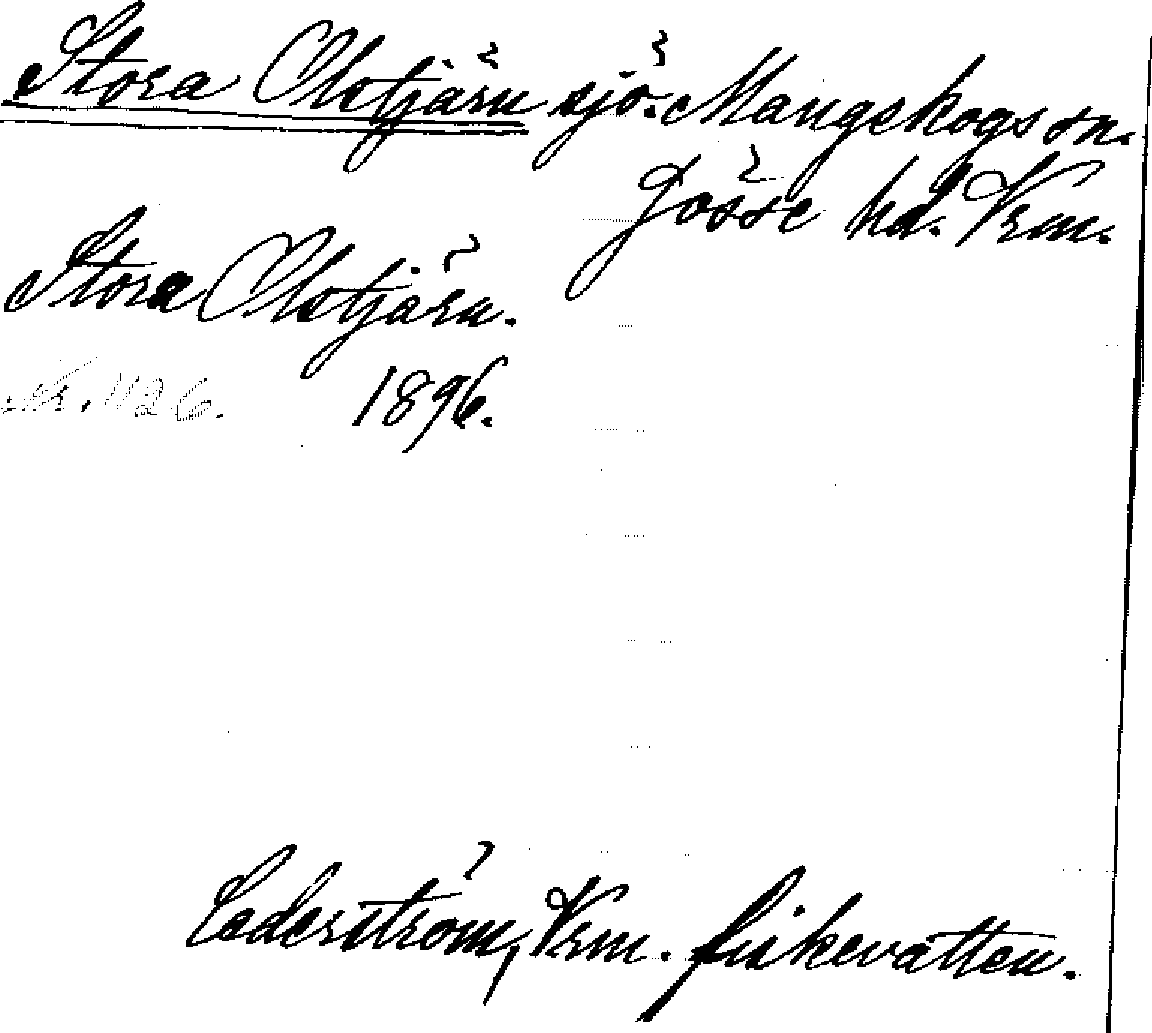 Stora Olotjärn sjö. Mangskogs sn.
Gösse hd. Vrm.
Stora Olotjärn.
Nr. 426. 1896.
Cederström, Vrm. fiskevatten.